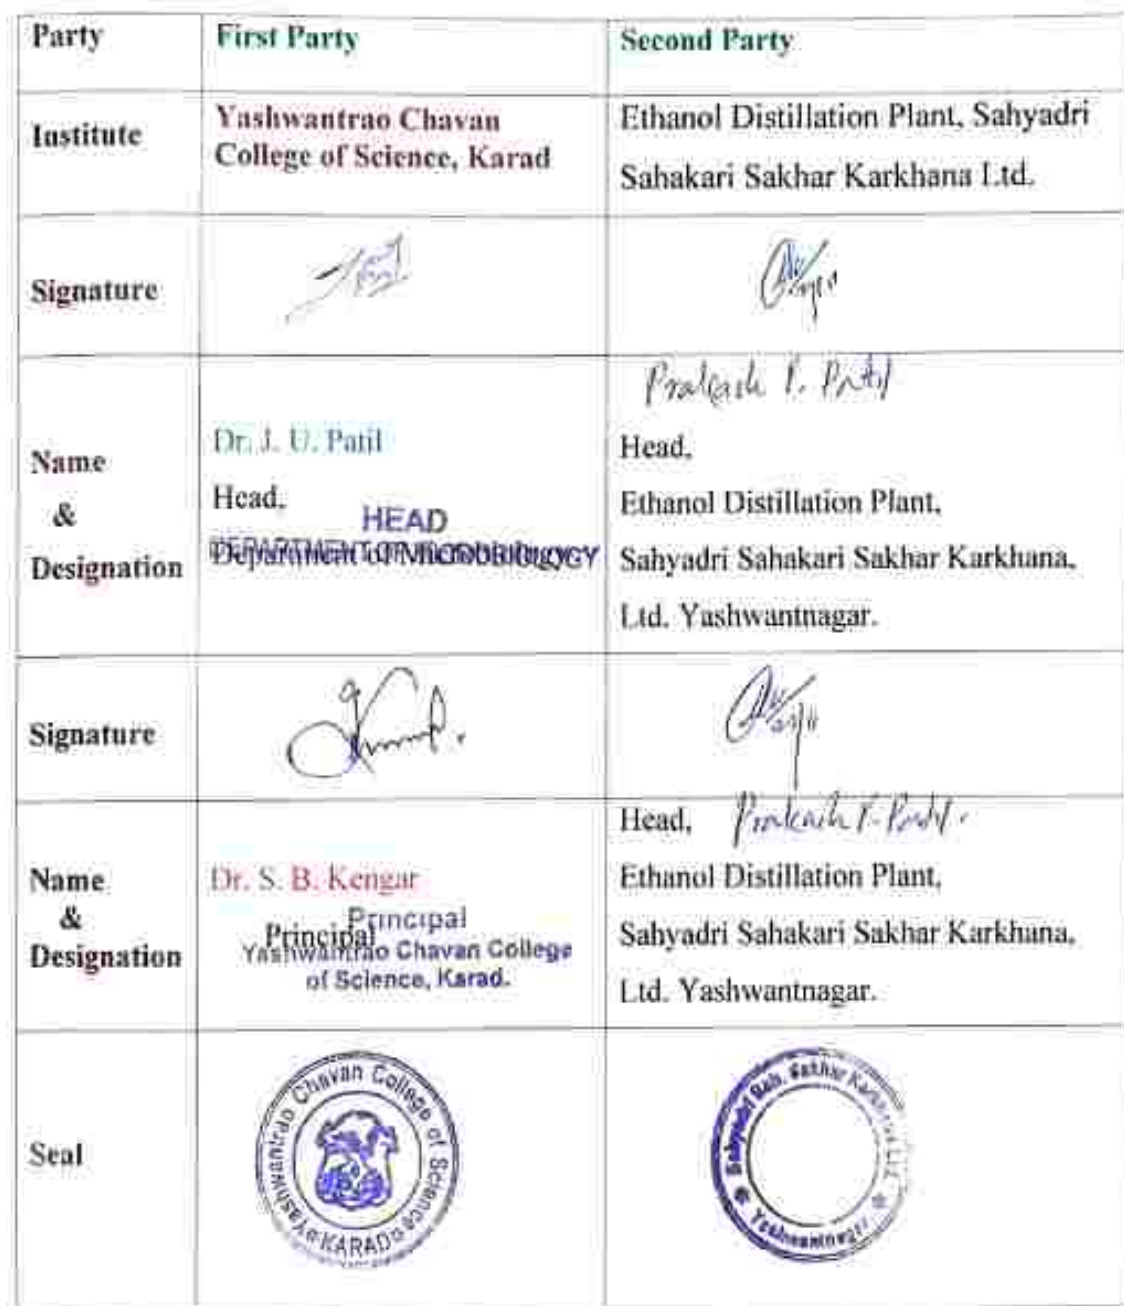 Party First Party Second Party
Institute
Yashwantrao Chavan
College of Science, Karad
Ethanol Distillation Plant, Sahyadri
Sahakari Sakhar Karkhana Ltd.
Signature
Name
&
Designation
Dr. J. U. Patil
Head,
HEAD
Department of Microbiology
DEPARTMENT OF MICROBIOLOGY
Prakash P. Patil
Head,
Ethanol Distillation Plant,
Sahyadri Sahakari Sakhar Karkhana,
Ltd. Yashwantnagar.
Signature
Name
&
Designation
Dr. S. B. Kengar
Principal
Principal
Yashwantrao Chavan College
of Science, Karad.
Head, Prakash P. Patil.
Ethanol Distillation Plant,
Sahyadri Sahakari Sakhar Karkhana,
Ltd. Yashwantnagar.
Seal
Yashwantrao Chavan College of Science
KARAD
Sahyadri Sah. Sakhar Karkhana Ltd.
Yashwantnagar